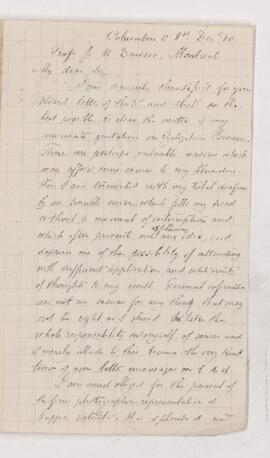 Columbus O 8th Dec. 80
Prof. J. W. Dawson, Montreal
My dear Sir,
I am sincerely thankful for your
letter of the 3d and shall do the
best possible to clear the matter of my
inaccurate quotation on
There are perhaps valuable reasons which
may afford some excuse to my blunders.
For I am tormented with my total deafness
by an which fills my head
without a moment of interruption and
which often prevent me following any idea, and
deprives me of the possibility of attending
with sufficient application and
of thought to my work. Personal infirmities
are not an excuse for any thing that may
not be right as it should be. I take the
whole responsibility on myself, of course and
I merely allude to this because the very kind
tone of your letter encourages me to do it.
I am much obliged for the present of
the fine photographic representation of
. It is splendid and